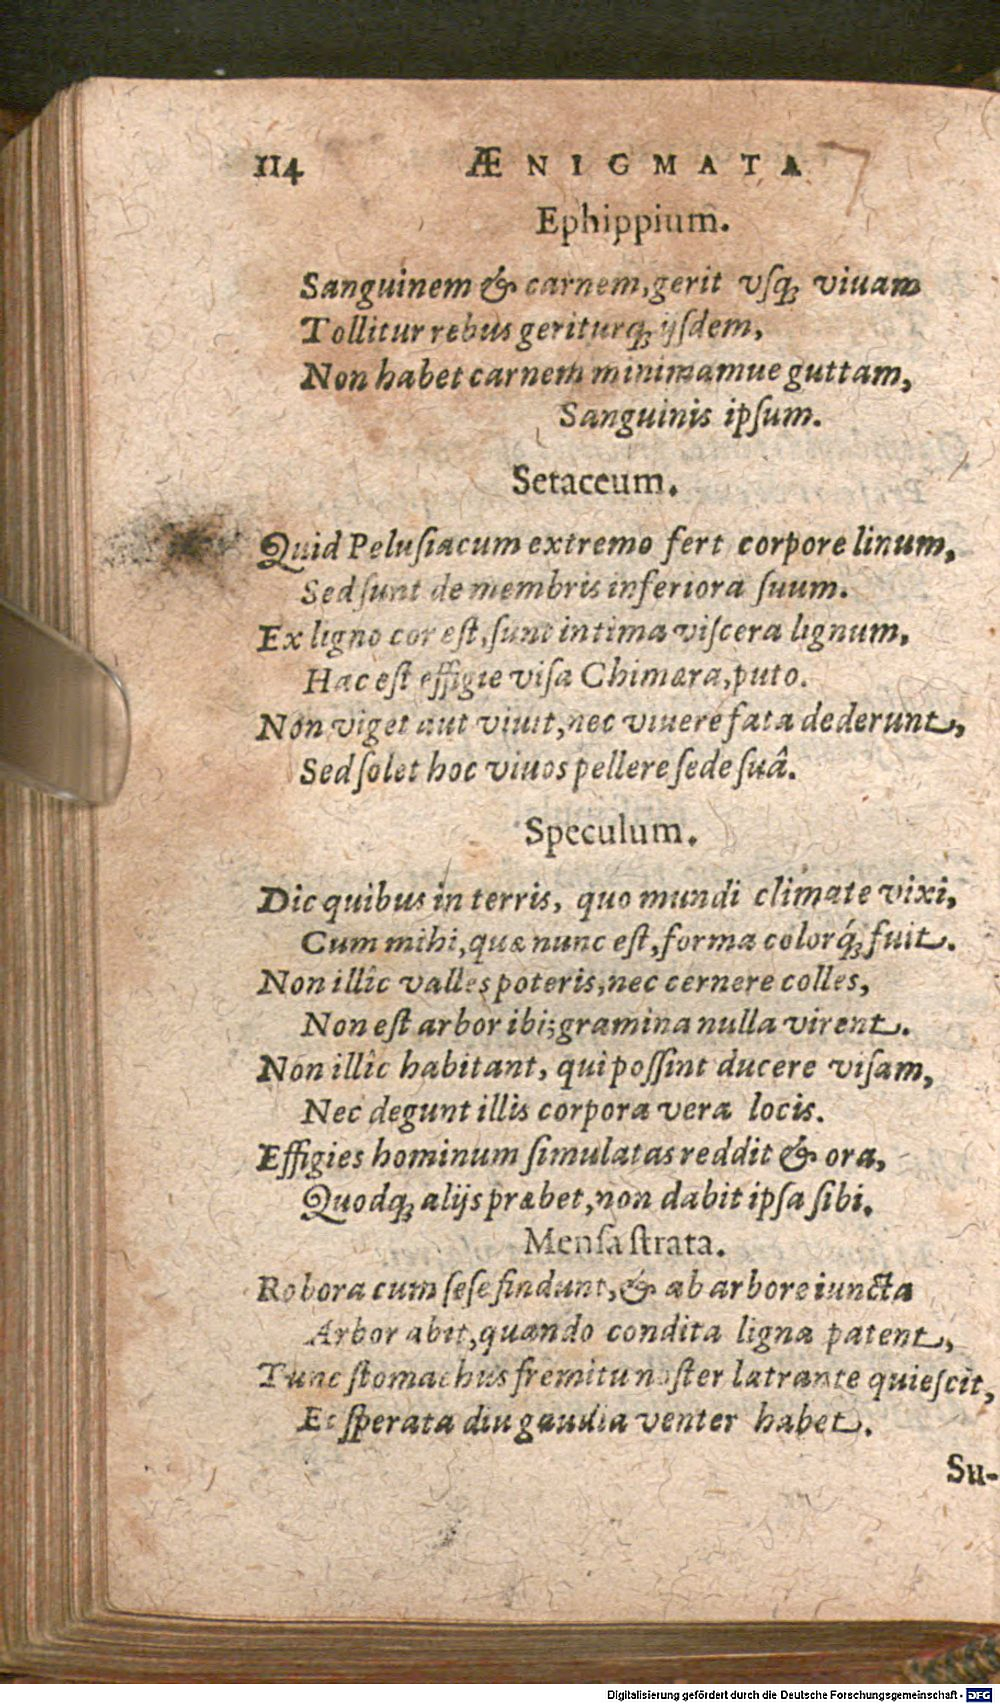 114 ÆNIGMATA
Ephippium.
Sanguinem & carnem, gerit vsq; viuam
Tollitur rebus geriturq; ijsdem,
Non habet carnem minimamue guttam,
Sanguinis ipsum.
Setaceum.
Quid Pelusiacum extremo fert corpore linum,
Sed sunt de membris inferiora suum.
Ex ligno cor est, sunt intima viscera lignum,
Hac est effigie visa Chimæra, puto.
Non viget aut viuit, nec viuere fata dederunt,
Sed solet hoc viuos pellere sede suâ.
Speculum.
Dic quibus in terris, quo mundi climate vixi,
Cum mihi, quæ nunc est, forma colorq́; fuit.
Non illîc valles poteris, nec cernere colles,
Non est arbor ibi; gramina nulla virent.
Non illîc habitant, qui possint ducere visam,
Nec degunt illis corpora vera locis.
Effigies hominum simulatas reddit & ora,
Quodq; alijs præbet, non dabit ipsa sibi.
Mensa strata.
Robora cum sese findunt, & ab arbore iuncta
Arbor abit, quando condita ligna patent,
Tunc stomachus fremitu noster latrante quiescit,
Et sperata diu gaudia venter habet.
Su-
Digitalisierung gefördert durch die Deutsche Forschungsgemeinschaft - DFG